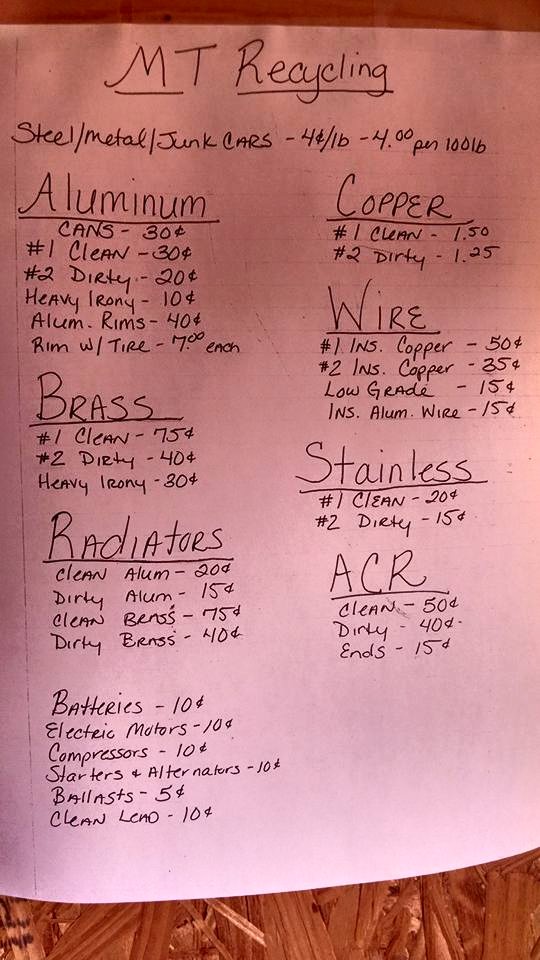 MT Recycling
Steel/metal/Junk CARS - 4¢/lb - 4.00 per 100lb
Aluminum
CANS - 30¢
#1 Clean - 30¢
#2 Dirty - 20¢
Heavy Irony - 10¢
Alum. Rims - 40¢
Rim w/ Tire - 7.00 each
BRASS
#1 Clean - 75¢
#2 Dirty - 40¢
Heavy Irony - 30¢
RADiATORS
Clean Alum - 20¢
Dirty Alum - 15¢
Clean Brass - 75¢
Dirty Brass - 40¢
Batteries - 10¢
Electric Motors - 10¢
Compressors - 10¢
Starters & Alternators - 10¢
Ballasts - 5¢
Clean Lead - 10¢
COPPER
#1 Clean - 1.50
#2 Dirty - 1.25
WIRE
#1 Ins. Copper - 50¢
#2 Ins. Copper - 35¢
Low Grade - 15¢
Ins. Alum. Wire - 15¢
Stainless
#1 Clean - 20¢
#2 Dirty - 15¢
ACR
Clean - 50¢
Dirty - 40¢
Ends - 15¢